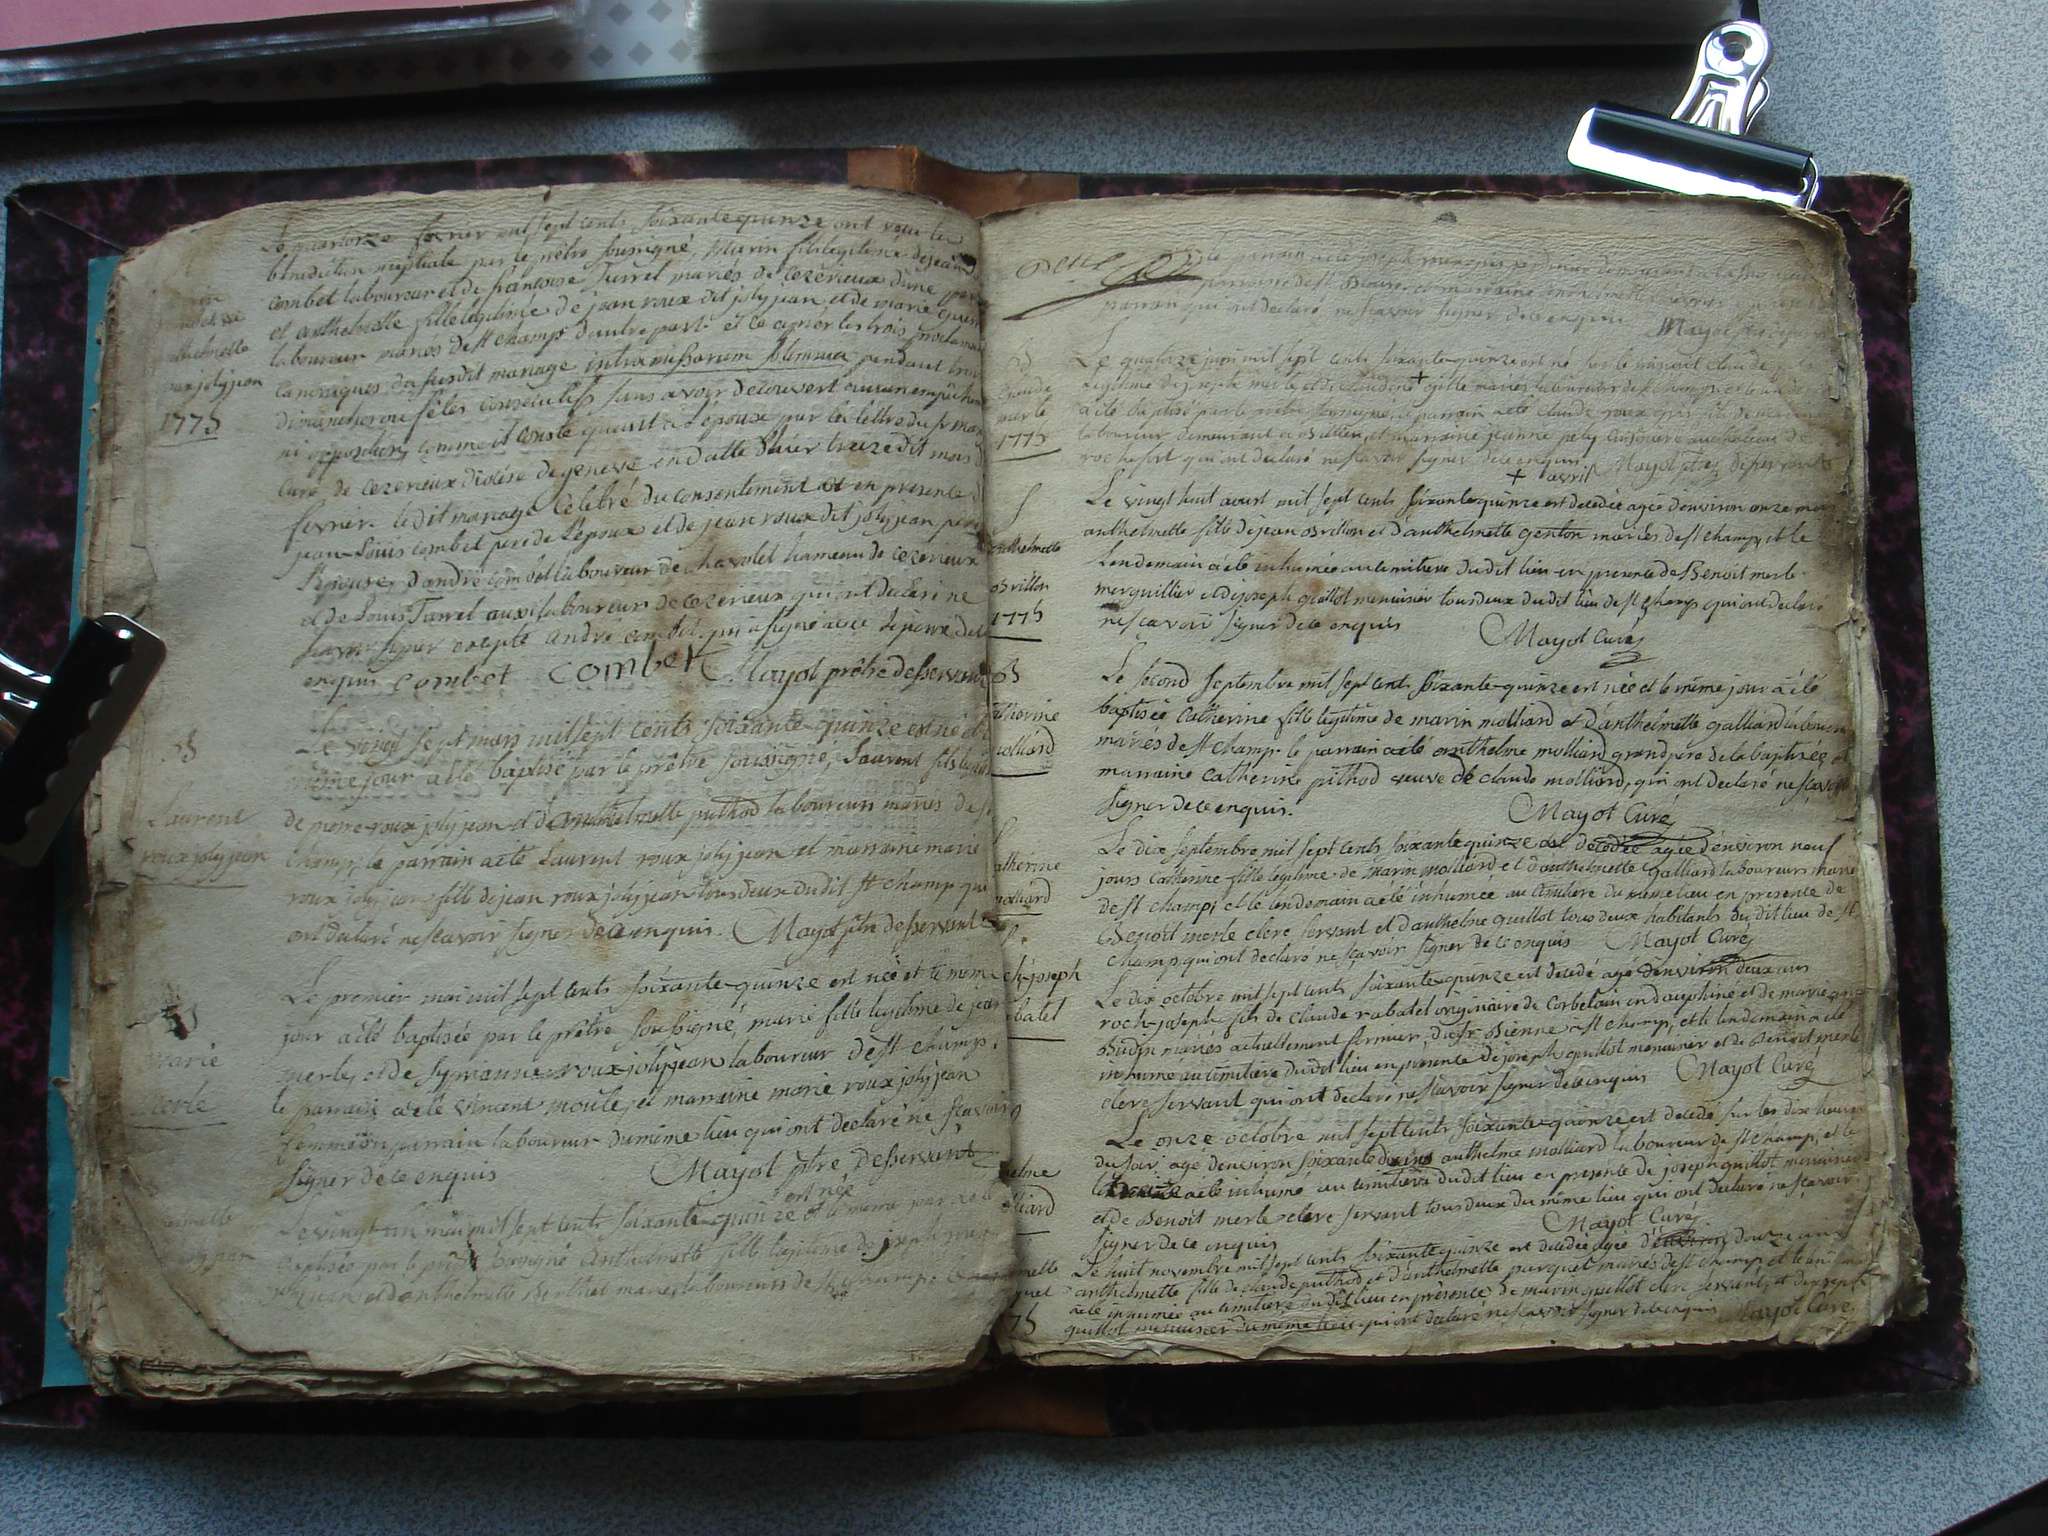 Le quatorze fevrier mil sept cents soixante quinze ont reçu la
benediction nuptiale par le prêtre soussigné, fils legitime de jean
combet laboureur et de françoise Turrel mariés de cezerieux d'une part
et anthelmette fille legitime de jean roux dit joly jean et de marie
laboureur mariés de st champ d'autre part et ce après les trois proclamations
canoniques du susdit mariage intra missarum solemnia pendant trois
dimanches ou fêtes consecutifs sans avoir decouvert aucun empêchement
ni opposition, comme il conste quant à l'epoux par la lettre du sr
curé de cezerieux diocèse de geneve en datte d'hier treize dit mois de
fevrier. le dit mariage celebré du consentement et en presence de
jean-Louis combet pere de l'epoux et de jean roux dit joly jean pere de
l'epouse, d'andré combet laboureur de chavolet hameau de cezerieux
et de Louis Turrel aussi laboureur de cezerieux qui ont declaré ne
sçavoir signer excepté andré combet qui a signé avec le pere de l'
enquis combet combet Mayot prêtre desservant
anthelmette
roux joly jean
1775
Le vingt sept mars mil sept cents soixante-quinze est né et le
même jour a été baptisé par le prêtre soussigné, Laurent fils legitime
de pierre roux joly jean et d'anthelmette puthod laboureurs mariés de st
champ, le parrain a été Laurent roux joly jean et marraine marie
roux joly jean fille de jean roux joly jean tous deux du dit st champ qui
ont declaré ne sçavoir signer de ce enquis. Mayot ptre desservant
B
Laurent
roux joly jean
Le premier mai mil sept cents soixante-quinze est née et le même
jour a été baptisée par le prêtre soussigné, marie fille legitime de jean
merle, et de roux joly jean laboureur de st champ.
le parrain a été vincent moule, et marraine marie roux joly jean
femme du parrain laboureur du même lieu qui ont declaré ne sçavoir
signer de ce enquis Mayot ptre desservant
B
marie
merle
est née
Le vingt un mai mil sept cents soixante-quinze et le même jour a été
baptisée par le prêtre soussigné anthelmette fille legitime de joseph
et d'anthelmette Berthet mariés laboureurs de st champ
le parrain a été joseph
parroisse de st
parrain qui ont declaré ne sçavoir signer de ce enquis Mayot
Le quatorze juin mil sept cents soixante-quinze est né sur le claude
legitime de joseph merle et de claudine + gille mariés laboureur de st champ, et le
a été baptisé par le prêtre soussigné, le parrain a été claude roux
laboureur demeurant à et marraine jeanne pety cuisiniere au chateau de
rochefort qui ont declaré ne sçavoir signer de ce enquis Mayot ptre desservant
B
claude
merle
1775
+ avril
Le vingt huit avril mil sept cents soixante-quinze est decedée agée d'environ onze mois
anthelmette fille de jean ovrillon et d'anthelmette genton mariés de st champ, et le
lendemain a été inhumée au cemitiere du dit lieu en presence de Benoit merle
marguillier et de joseph quillot menuisier tous deux du dit lieu de st champ qui ont declaré
ne sçavoir signer de ce enquis Mayot Curé
S
anthelmette
ovrillon
1775
Le second septembre mil sept cents soixante-quinze est née et le même jour a été
baptisée catherine fille legitime de marin molliard et d'anthelmette galliard laboureurs
mariés de st champ. le parrain a été anthelme molliard grand pere de la baptisée et
marraine catherine puthod veuve de claude molliard, qui ont declaré ne sçavoir
signer de ce enquis. Mayot Curé
B
catherine
molliard
Le dix septembre mil sept cents soixante quinze est decedée agée d'environ neuf
jours catherine fille legitime de marin molliard et d'anthelmette galliard laboureurs mariés
de st champ, et le lendemain a été inhumée au cemitiere du même lieu en presence de
Benoit merle clerc servant et d'anthelme quillot tous deux habitants du dit lieu de st
champ qui ont declaré ne sçavoir signer de ce enquis Mayot Curé
S
catherine
molliard
Le dix octobre mil sept cents soixante-quinze est decedé agé d'environ deux ans
roch-joseph fils de claude rabatel originaire de corbelain en dauphiné et de marie
Budin mariés actuellement fermier du sr Dienne a st champ, et le lendemain a été
inhumé au cemitiere du dit lieu en presence de joseph quillot menuisier et de Benoit merle
clerc servant qui ont declaré ne sçavoir signer de ce enquis Mayot Curé
S
roch-joseph
rabatel
Le onze octobre mil sept cents soixante-quinze est decedé sur les dix heures
du soir, agé d'environ soixante anthelme molliard laboureur de st champ, et le
a été inhumé au cemitiere du dit lieu en presence de joseph quillot menuisier
et de Benoit merle clerc servant tous deux du même lieu qui ont declaré ne sçavoir
signer de ce enquis Mayot Curé
anthelme
molliard
Le huit novembre mil sept cents soixante quinze est decedée agée d'environ douze ans
anthelmette fille de claude puthod et d'anthelmette parquet mariés de st champ et le
a été inhumée au cemitiere du dit lieu en présence de marin quillot clerc servant, et de joseph
quillot menuisier du même lieu qui ont declaré ne sçavoir signer de ce enquis Mayot Curé